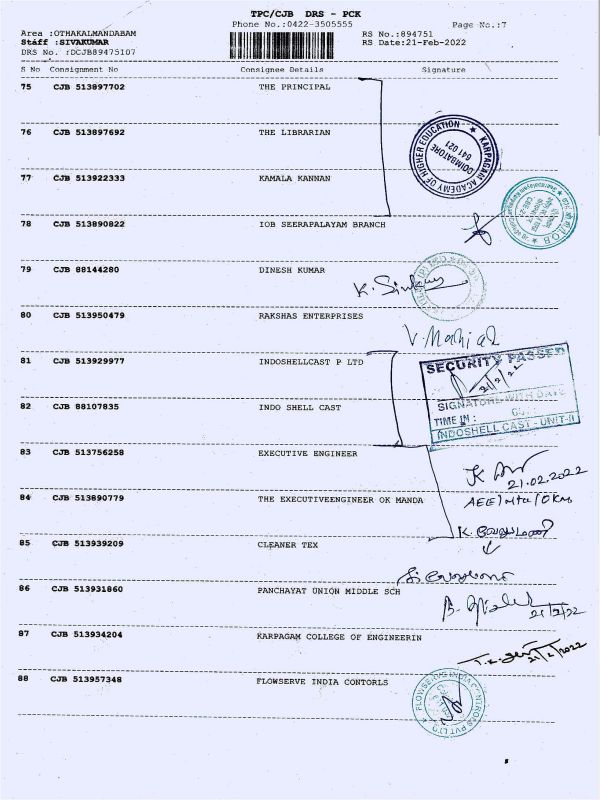 TPC/CJB DRS - PCK
Phone No.:0422-3505555
Page No.:7
Area :OTHAKALMANDABAM
RS No.:894751
Staff :SIVAKUMAR
RS Date:21-Feb-2022
DRS No. :DCJB89475107
S No Consignment No Consignee Details Signature
75 CJB 513897702 THE PRINCIPAL
76 CJB 513897692 THE LIBRARIAN
KARPAGAM ACADEMY OF HIGHER EDUCATION
COIMBATORE
641 021
77 CJB 513922333 KAMALA KANNAN
78 CJB 513890822 IOB SEERAPALAYAM BRANCH
79 CJB 88144280 DINESH KUMAR
K.
80 CJB 513950479 RAKSHAS ENTERPRISES
V.
81 CJB 513929977 INDOSHELLCAST P LTD
SECURITY PASSED
21/2/22
SIGNATURE WITH DATE
TIME IN :
INDOSHELL CAST - UNIT-II
82 CJB 88107835 INDO SHELL CAST
83 CJB 513756258 EXECUTIVE ENGINEER
21.02.2022
84 CJB 513890779 THE EXECUTIVEENGINEER OK MANDA
K.
85 CJB 513939209 CLEANER TEX
86 CJB 513931860 PANCHAYAT UNION MIDDLE SCH
21/2/22
87 CJB 513934204 KARPAGAM COLLEGE OF ENGINEERIN
21/2/2022
88 CJB 513957348 FLOWSERVE INDIA CONTORLS
FLOWSERVE INDIA CONTROLS PVT LTD